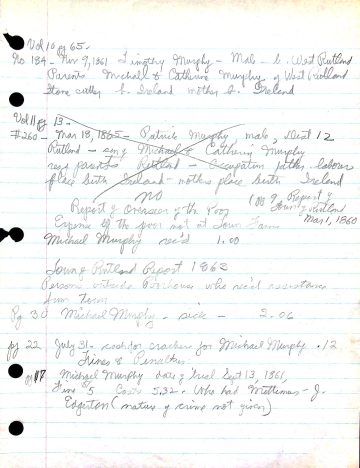 Vol 10 pg 65.
No 184 - Nov 9, 1861 Timothy Murphy - Male - b. West Rutland
Parents Michael & Catherine Murphy of West Rutland
Stone cutter b. Ireland mother b. Ireland
Vol 11 pg 13 -
#260 - Mar 18, 1865 - Patrick Murphy male, Dist 12
Rutland - son of Michael & Catherine Murphy
res parents Rutland - Occupation father - laborer
place birth Ireland - mothers place birth Ireland
NO
Report of Overseer of the Poor
(pg 9 Report of Town of Rutland Mar 1, 1860
Expense of the poor not at Town Farm
Michael Murphy rec'd 1.00
Town of Rutland Report 1862
Persons outside Poorhouse who rec'd assistance
from Farm
Pg 30 Michael Murphy - sick - 2.06
pg 22 July 31 - crackers for Michael Murphy .12
Fines & Penalties
pg 17 Michael Murphy date of trial Sept 13, 1861,
Fine $5 Costs 5.32 - Who had Mittimus - J.
Edgerton (nature of crime not given)